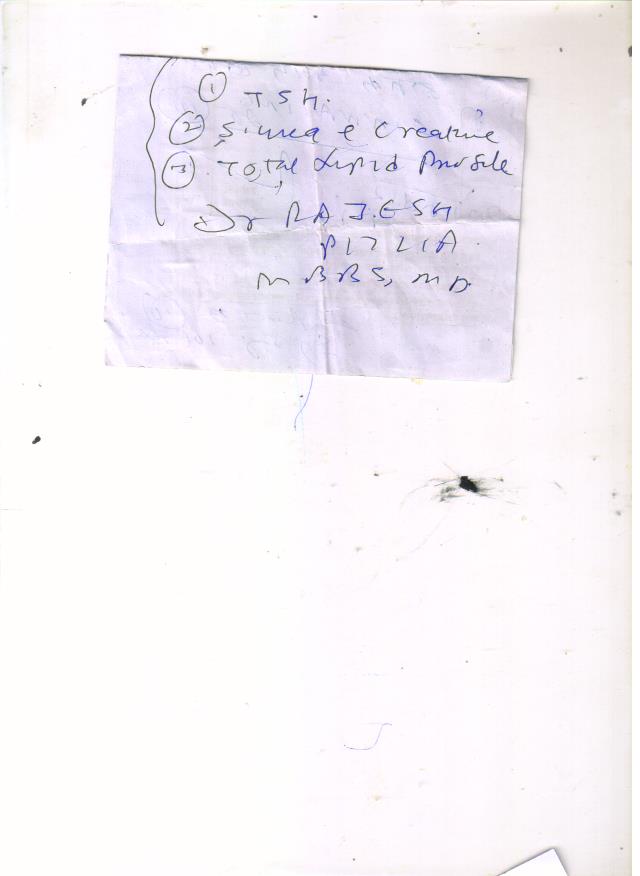 ① TSH.
② S. urea & Creatine
③ Total Lipid Profile
Dr RAJESH
MBBS, MD.